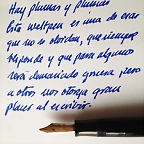 Hay plumas y plumas
Esta waltzen es una de esas
que no se olvidan, que siempre
responde y que para algunos
será demasiado gruesa, pero
a otros nos otorga gran
placer al escribir.